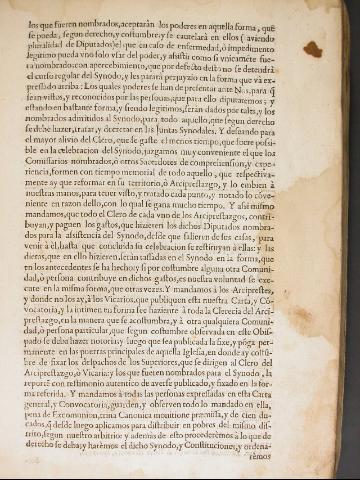 los que fueren nombrados, aceptaràn los poderes en aquella forma, que
se pueda, segun derecho, y costumbre, y se cautelarà en ellos (aviendo
pluralidad de Diputados) el que en caso de enfermedad, ò impedimento
legitimo pueda vno solo vsar del poder, y assistir como si vnicamẽte fue-
ra nombrado con apercebimiento, que por defecto desto no se detendrà
el curso regular del Synodo, y les pararà perjuyzio en la forma que và ex-
pressado arriba: Los quales poderes se han de presentar ante Nos, para q̃
sean vistos, y reconocidos por las personas, que para ello diputaremos; y
estando en bastante forma, y siendo legitimos, seràn dados por tales, y los
nombrados admitidos al Synodo, para todo aquello, que segun derecho
se debe hazer, tratar, y decretar en las Juntas Synodales. Y deseando para
el mayor alivio del Clero, que se gaste el menos tiempo, que fuere possi-
ble en la celebracion del Synodo, juzgamos muy conveniente el que los
Comissarios nombrados, ò otros Sacerdotes de comprehension, y expe-
riencia, formen con tiempo memorial de todo aquello, que respectiva-
mente ay que reformar en su territorio, ò Arciprestazgo, y lo embien à
nuestras manos, para tener visto, y tratado cada punto, y notado lo cõve-
niente en razon dello, con lo qual se gana mucho tiempo. Y assi mismo
mandamos, que todo el Clero de cada vno de los Arciprestazgos, contri-
buyan, y paguen los gastos, que hizieren los dichos Diputados nombra-
dos para la assistencia del Synodo, desde que salieren de sus casas, para
venir à èl, hasta que concluida su celebracion se restituyan à ellas: y las
dietas, que en ello hizieren, seràn tassadas en el Synodo en la forma, que
en los antecedentes se ha hecho; y si por costumbre alguna otra Comuni-
dad, ò persona contribuye en dichos gastos, es nuestra voluntad se exe-
cute en la misma forma, que otras vezes. Y mandamos à los Arciprestes,
y donde no los ay, à los Vicarios, que publiquen esta nuestra Carta, y Cõ-
vocatoria, y la intimen en forma fee haziente à toda la Clerecia del Arci-
prestazgo, en la manera que se acostumbra, y à otra qualquiera Comuni-
dad, ò persona particular, que segun costumbre observada en este Obis-
pado se deba hazer notoria; y luego que sea publicada la fixe, y põga per-
manente en las puertas principales de aquella Iglesia, en donde ay costũ-
bre de fixar los despachos de los Superiores, que se dirigen al Clero del
Arciprestazgo, ò Vicaria: y los que fueren nombrados para el Synodo, la
reporten con testimonio autentico de averse publicado, y fixado en la for-
ma referida. Y mandamos à todas las personas expressadas en esta Carta
general, y Convocatoria, guarden, y observen todo lo mandado en ella,
pena de Excomunion, trina Canonica monitione præmissa, y de cien du-
cados, q̃ desde luego aplicamos para distribuir en pobres del mismo dis-
trito, segun nuestro arbitrio: y además de esto procederèmos à lo que de
derecho se deba; y harèmos el dicho Synodo, y Constituciones, y ordena-
rèmos